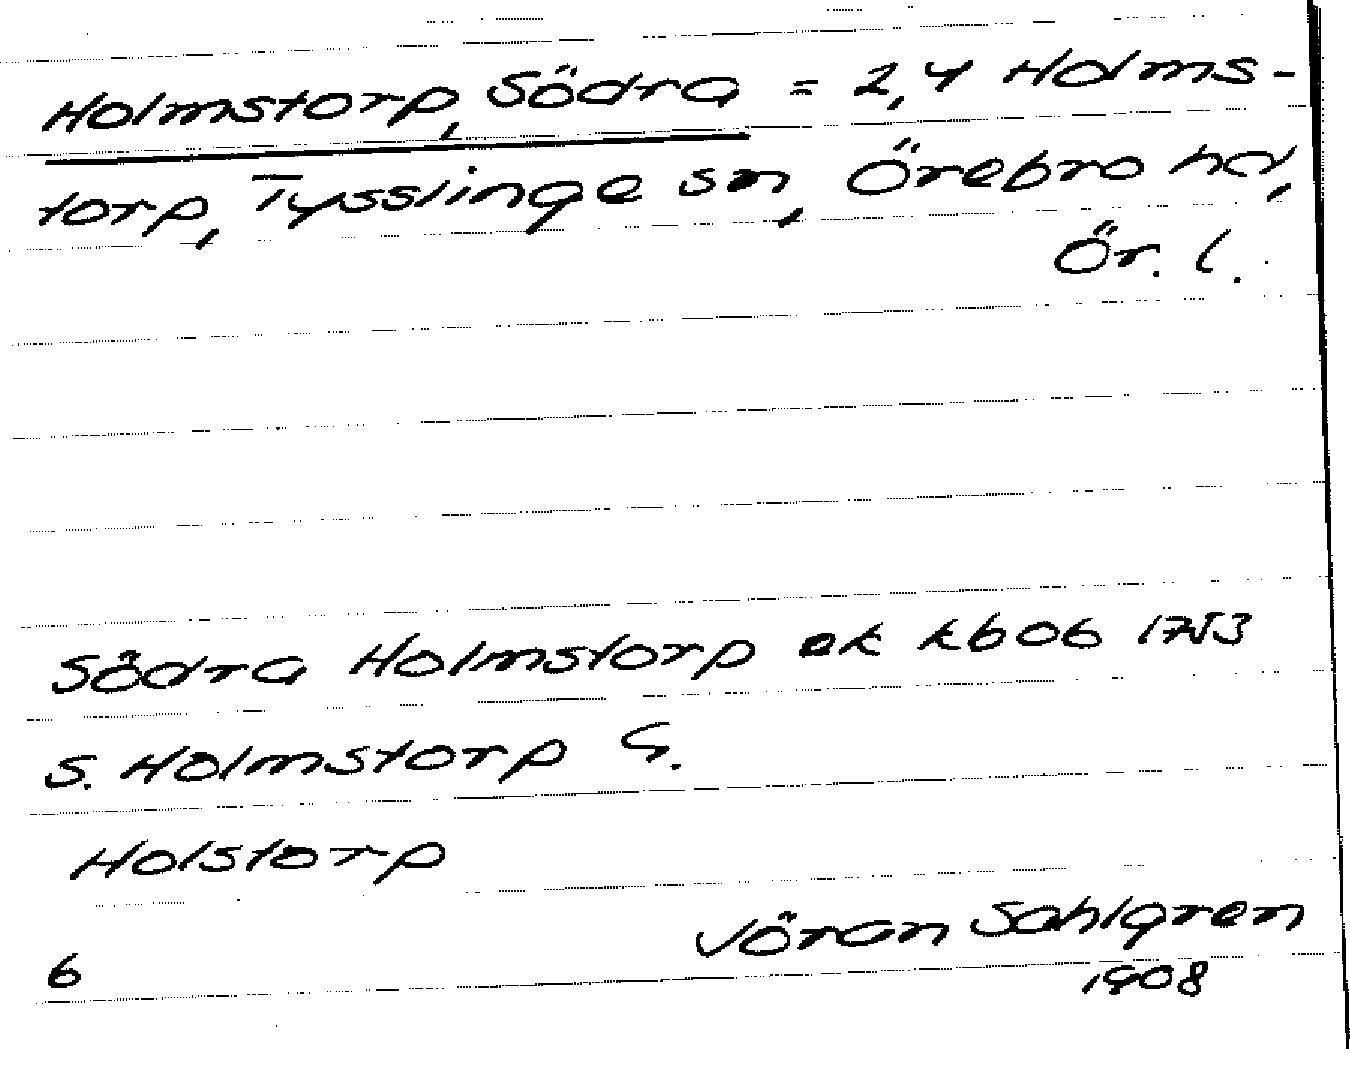 Holmstorp, Södra = 2,4 Holms-
torp, Tysslinge sn, Örebro hd,
Ör. l.
Södra Holmstorp ek k606 1753
S. Holmstorp G.
Holstorp
Jöran Sahlgren
6
1908